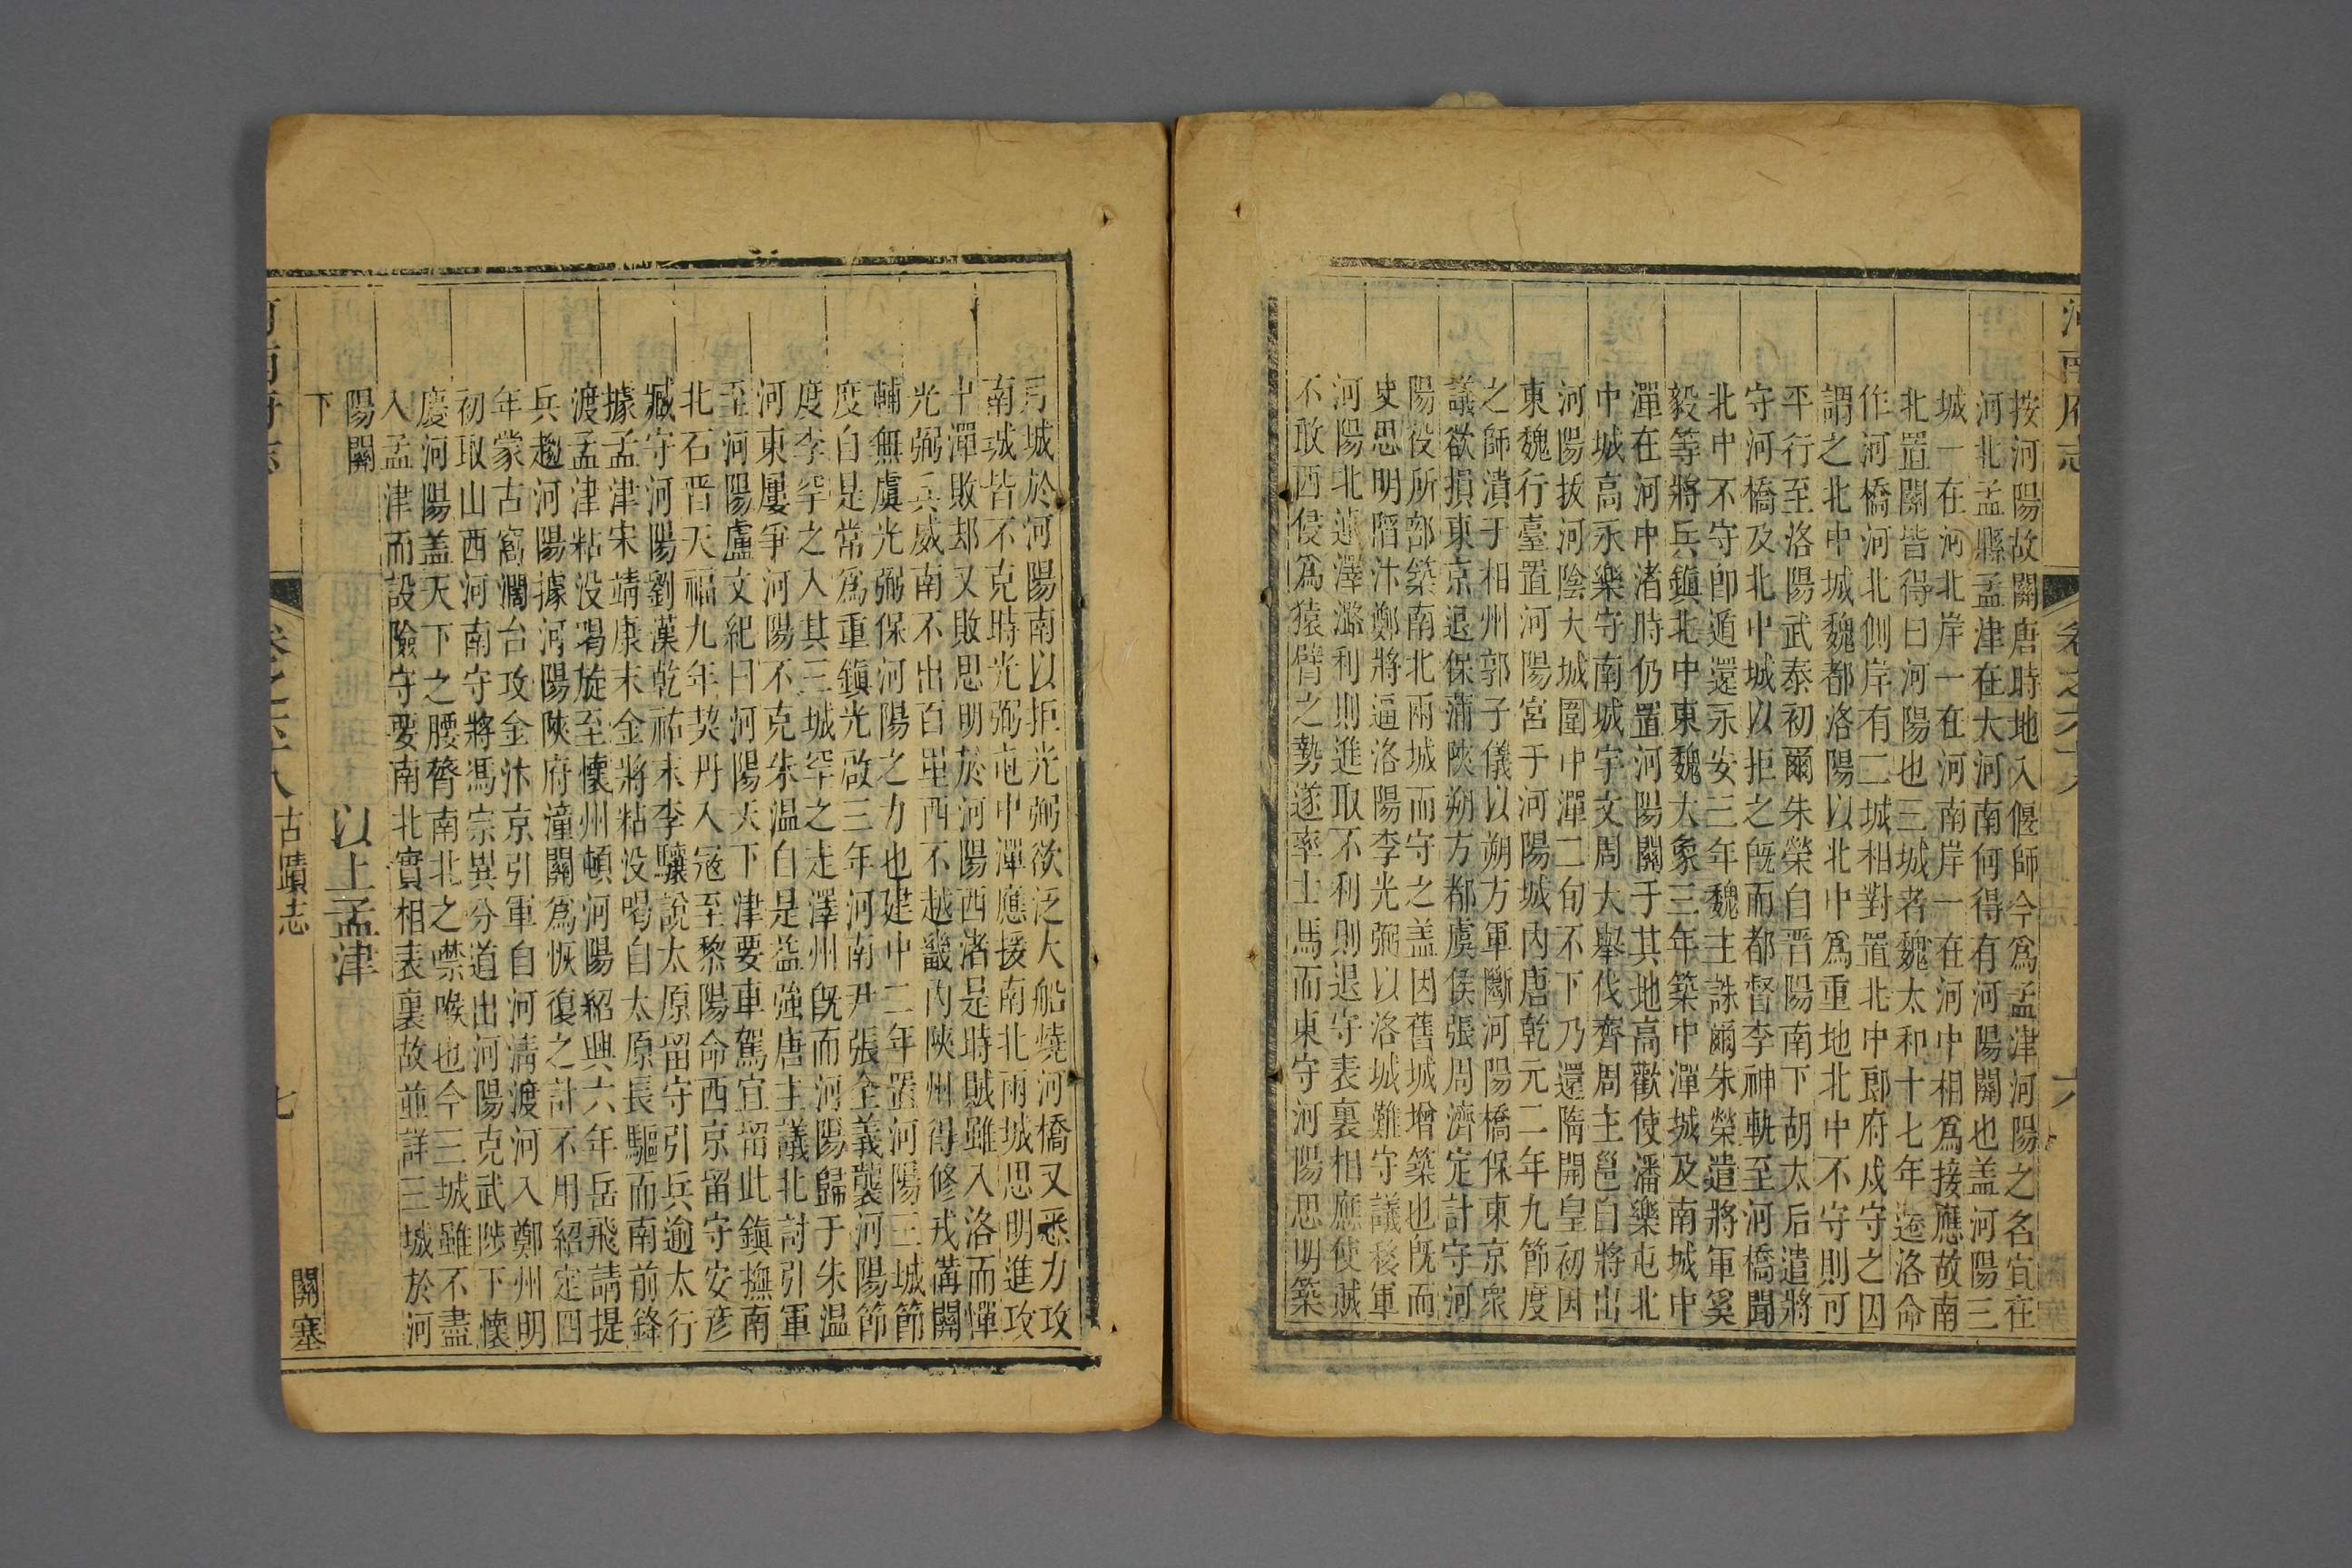 河南府志
卷之六十八
六
按河陽故關唐時地入偃師今爲孟津河陽之名宜在
河北孟縣孟津在大河南何得有河陽關也盖河陽三
城一在河北岸一在河南岸一在河中相爲接應故南
北置關皆得曰河陽也三城者魏太和十七年遷洛命
作河橋河北側岸有二城相對置北中郎府戍守之因
謂之北中城魏都洛陽以北中爲重地北中不守則可
平行至洛陽武泰初爾朱榮自晋陽南下胡太后遣將
守河橋及北中城以拒之旣而都督李神軌至河橋聞
北中不守卽遁還永安三年魏主誅爾朱榮遣將軍奚
毅等將兵鎮北中東魏大象三年築中潬城及南城中
潬在河中渚時仍置河陽關于其地高歡使潘樂屯北
中城高永樂守南城宇文周大舉伐齊周主邕自將出
河陽拔河陰大城圍中潬二旬不下乃還隋開皇初因
東魏行臺置河陽宮于河陽城內唐乾元二年九節度
之師潰于相州郭子儀以朔方軍斷河陽橋保東京衆
議欲損東京退保蒲陝朔方都虞侯張周濟定計守河
陽役所部築南北兩城而守之盖因舊城增築也旣而
史思明陷汴鄭將逼洛陽李光弼以洛城難守議移軍
河陽北連澤潞利則進取不利則退守表裏相應使賊
不敢西侵爲猿臂之勢遂率士馬而東守河陽思明築
月城於河陽南以拒光弼欲泛大船燒河橋又悉力攻
南城皆不克時光弼屯中潬應援南北兩城思明進攻
中潬敗却又敗思明於河陽西渚是時賊雖入洛而憚
光弼兵威南不出百里西不越畿內陝州得修戎溝關
輔無虞光弼保河陽之力也建中二年置河陽三城節
度自是常爲重鎮光啟三年河南尹張全義襲河陽節
度李罕之入其三城罕之走澤州旣而河陽歸于朱温
河東屢爭河陽不克朱温自是益強唐主議北討引軍
至河陽盧文紀曰河陽天下津要車駕宜留此鎮撫南
北石晋天福九年契丹入寇至黎陽命西京留守安彦
臧守河陽劉漢乾祐末李驤說太原留守引兵逾太行
據孟津宋靖康末金將粘没喝自太原長驅而南前鋒
渡孟津粘没喝旋至懷州頓河陽紹興六年岳飛請提
兵趨河陽據河陽陝府潼關爲恢復之計不用紹定四
年蒙古窩濶台攻金汴京引軍自河淸渡河入鄭州明
初取山西河南守將馮宗異分道出河陽克武陟下懷
慶河陽盖天下之腰膂南北之噤喉也今三城雖不盡
入孟津而設險守要南北實相表裏故並詳三城於河
陽關
以上孟津
下
河南府志
卷之六十八
古蹟志
七
關塞